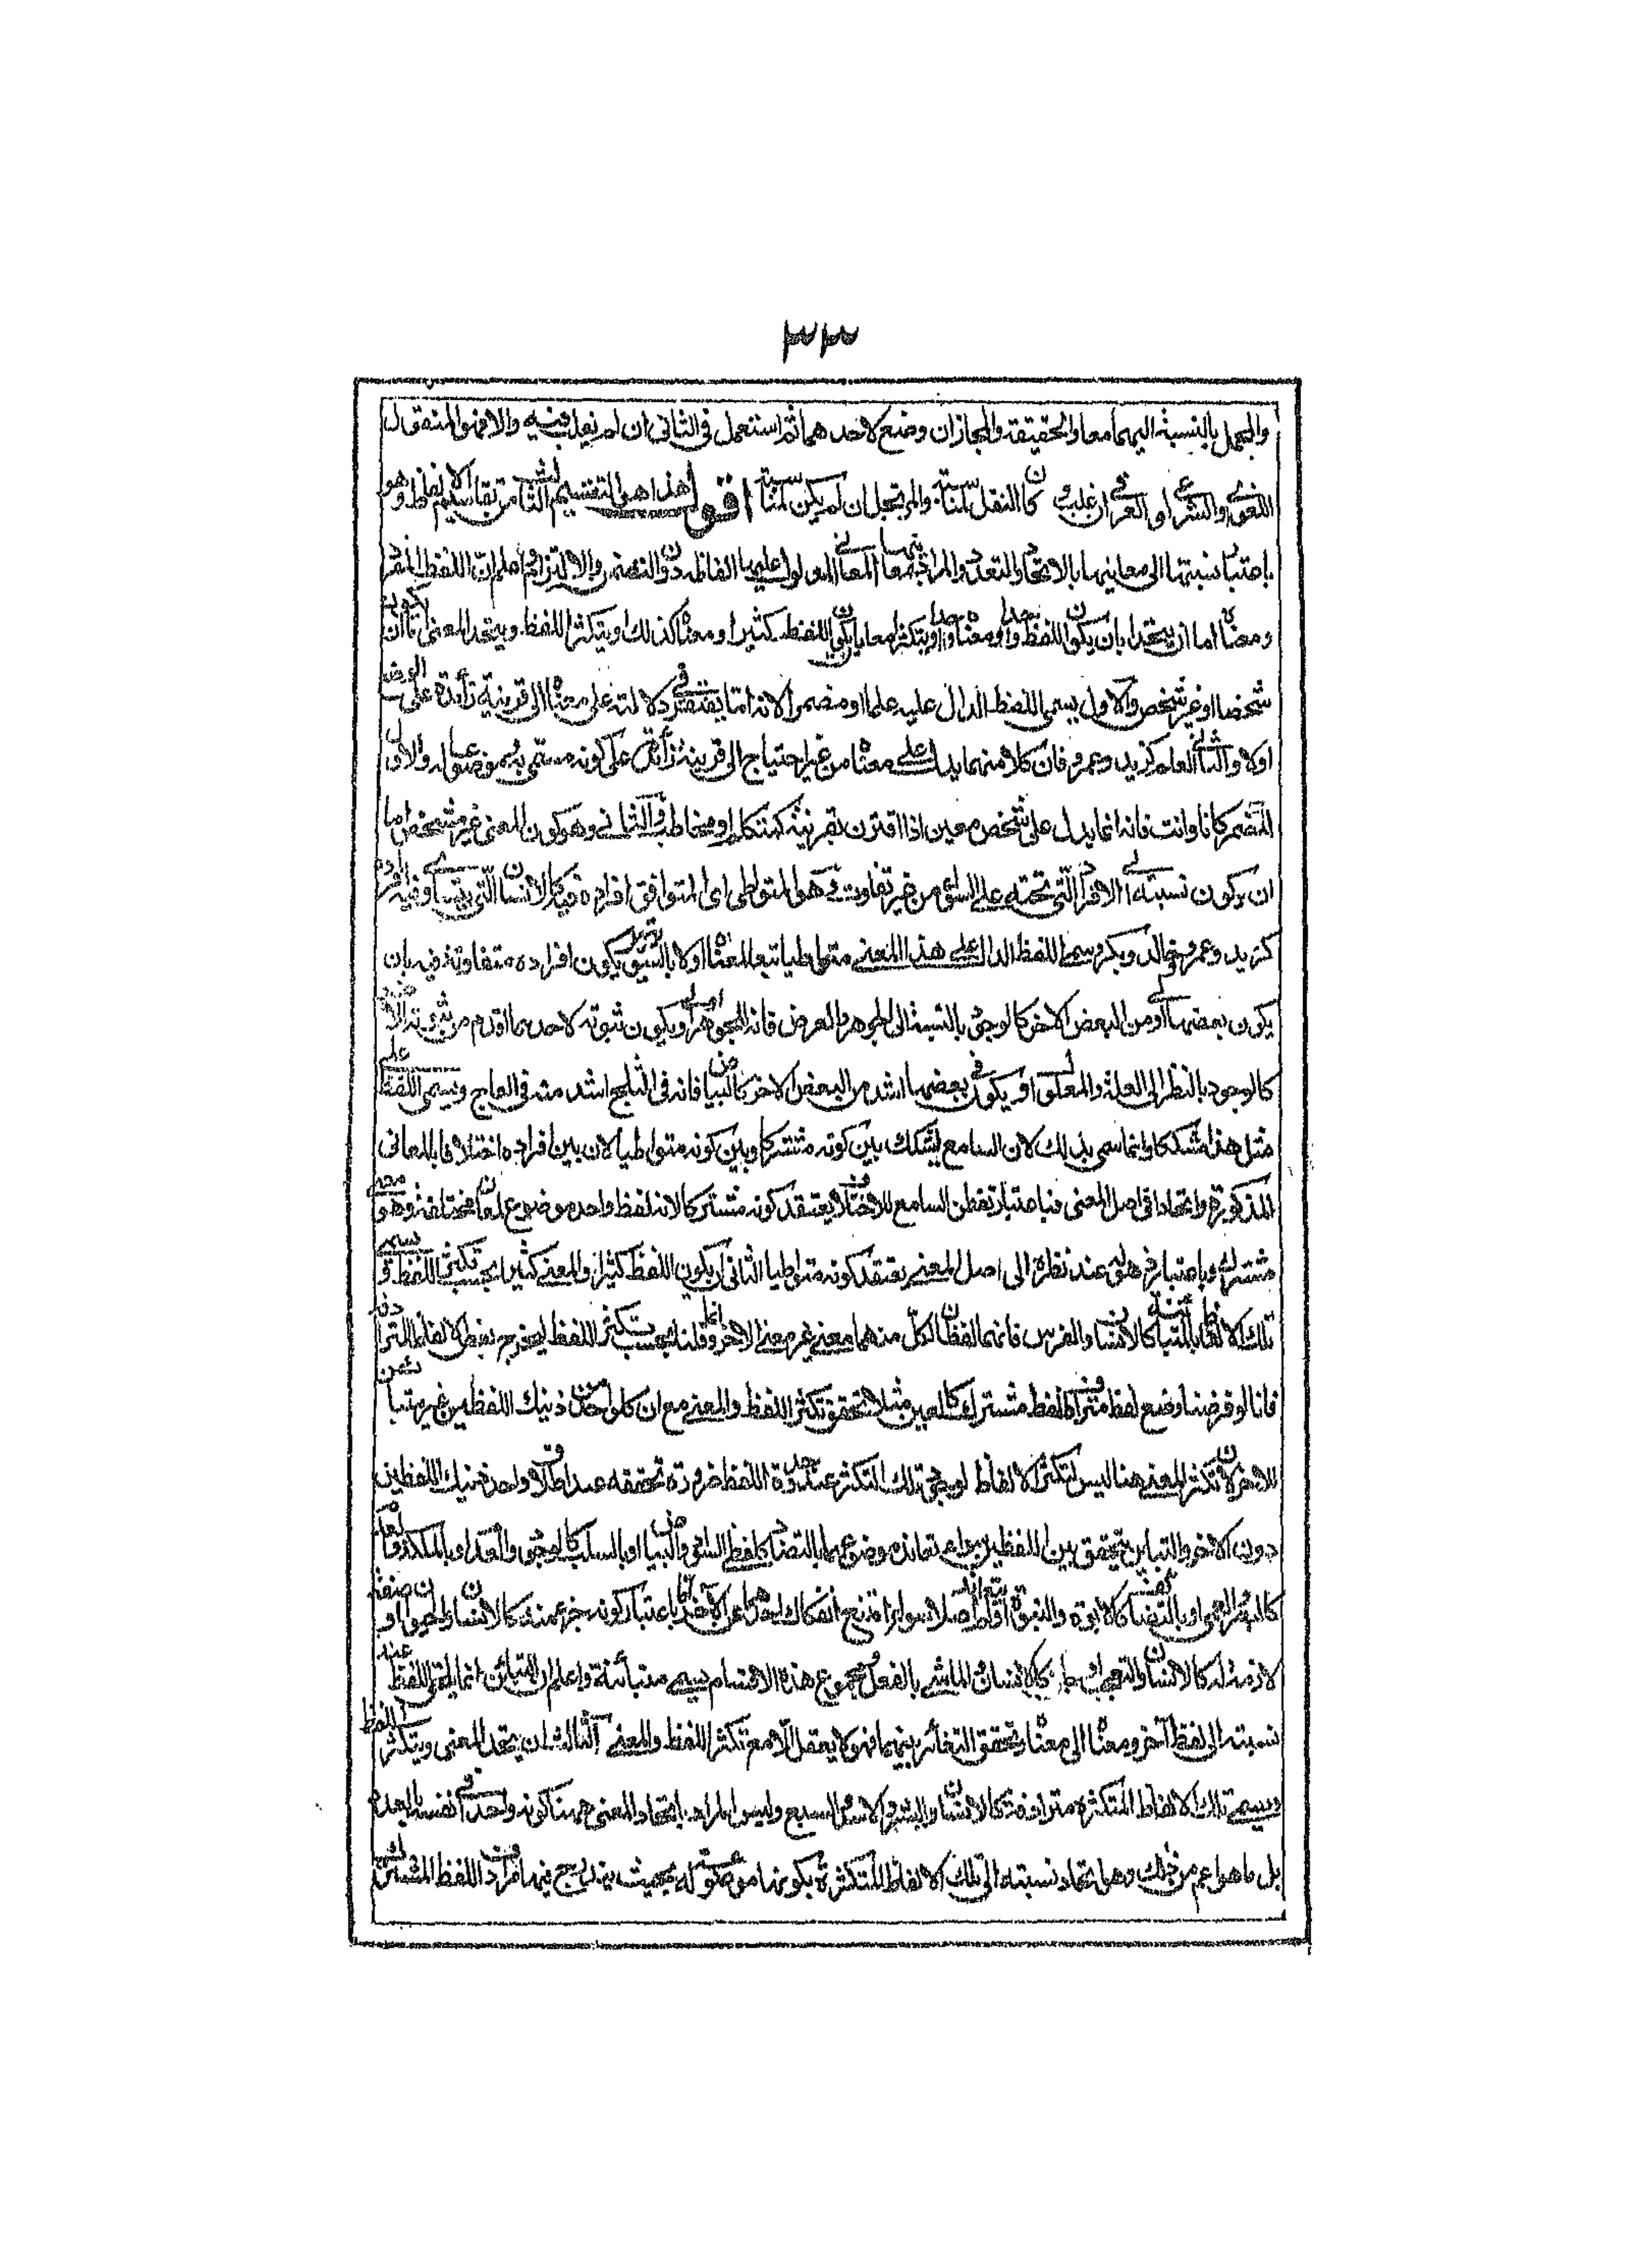 ٣٣
والمجمل بالنسبة اليهما معا والحقيقة والمجاز ان وضع لاحدهما ثم استعمل في الثاني ان لم يغلب فيه والا فهو المنقول
اللغوي او الشرعي او العرفي ان غلب وكان النقل لمناسبة والمرتجل ان لم يكن لمناسبة اقول هذا هو التقسيم الثالث من تقاسيم الالفاظ وهو
باعتبار نسبتها الى معانيها بالاتحاد والتعدد والمراد بمعانيها المعاني المدلول عليها بالفاظه دون التضمن والالتزام واعلم ان اللفظ المفرد
ومعناه اما ان يتحدا بان يكون اللفظ واحدا ومعناه واحدا او يتكثرا معا بان يكون اللفظ كثيرا ومعناه كذلك او يتكثر اللفظ ويتحد المعنى
شخصا او غير شخص والاول يسمى اللفظ الدال عليه علما او مضمرا لانه اما يفتقر في دلالته على معناه الى قرينة زائدة على الوضع
اولا والثاني العلم كزيد وعمرو فان كلا منهما يدل على معناه من غير احتياج الى قرينة زائدة على كونه مسمى به وموضوعا له والاول
المضمر كانا وانت فانه انما يدل على شخص معين اذا اقترن بقرينة كمتكلم او مخاطب والثاني وهو كون المعنى غير مشخص اما
ان يكون نسبته الى الافراد التي تحته على السواء من غير تفاوت فهو المتواطي اي المتوافق افراده فيه كالانسان التي يتساوى فيه افراده
كزيد وعمرو وخالد وبكر وسمى اللفظ الدال على هذا المعنى متواطيا تبعا لمعناه اولا بالسوية بل يكون افراده متفاوتة فيه بان
يكون بعضها اولى من البعض الاخر كالوجود بالنسبة الى الجوهر والعرض فانه للجوهر اولى او يكون ثبوته لاحدهما اقدم من ثبوته للاخر
كالوجود بالنظر الى العلة والمعلول او يكون في بعضها اشد من البعض الاخر كالبياض فانه في الثلج اشد منه في العاج ويسمى اللفظ على
مثل هذا مشككا وانما سمي بذلك لان السامع يشكك بين كونه مشتركا وبين كونه متواطيا لان بين افراده اختلافا بالمعاني
المذكورة واتحادا في اصل المعنى فباعتبار تفطن السامع للاختلاف يعتقد كونه مشتركا لانه لفظ واحد موضوع لمعان مختلفة وهو معنى
مشترك وباعتبار ذهوله عند نظره الى اصل المعنى يعتقد كونه متواطيا الثاني ان يكون اللفظ كثيرا والمعنى كثيرا بحسب تكثر اللفظ ويسمى
تلك الالفاظ بالمتباينة كالانسان والفرس فانهما لفظان لكل منهما معنى غير معنى الاخر وانما قلنا بحسب تكثر اللفظ ليخرج بعض الالفاظ المترادفة
فانا لو فرضنا وضع لفظ مترادف للفظ مشترك كالعين مثلا تحقق تكثر اللفظ والمعنى مع ان كل واحد من ذينك اللفظين غير متباين
للاخر لان تكثر المعنى هنا ليس لتكثر الالفاظ لوجود ذلك التكثر عند وحدة اللفظ ضرورة تحققه عند اطلاق واحد ذينك اللفظين
دون الاخر والتباين يتحقق بين اللفظين سواء تعاند موضوعهما بالتضاد كلفظ السواد والبياض او بالسلب كالوجود والعدم او بالملكة وعدمها
كالبصر والعمى او بالتضايف كالابوة والبنوة او لم يتعاندا اصلا سواء امتنع انفكاك احدهما عن الاخر اما باعتبار كونه جزءا منه كالانسان والحيوان او صفة
لازمة له كالانسان والتعجب او جاز كالانسان الماشي بالفعل فمجموع هذه الاقسام يسمى متباينة واعلم ان التباين انما يلحق اللفظ عند
نسبته الى لفظ اخر ومعناه الى معناه وتحقق التغاير بينهما فهو لا يعقل الا مع تكثر اللفظ والمعنى الثالث ان يتحد المعنى ويتكثر اللفظ
ويسمى تلك الالفاظ المتكثرة مترادفة كالانسان والبشر والاسد والسبع وليس المراد باتحاد المعنى ههنا كونه واحدا في نفسه بالعدد
بل ما هو اعم من ذلك وهو اتحاد نسبته الى تلك الالفاظ المتكثرة بكونها موضوعة له بحيث يندرج فيها مرادف اللفظ المشترك